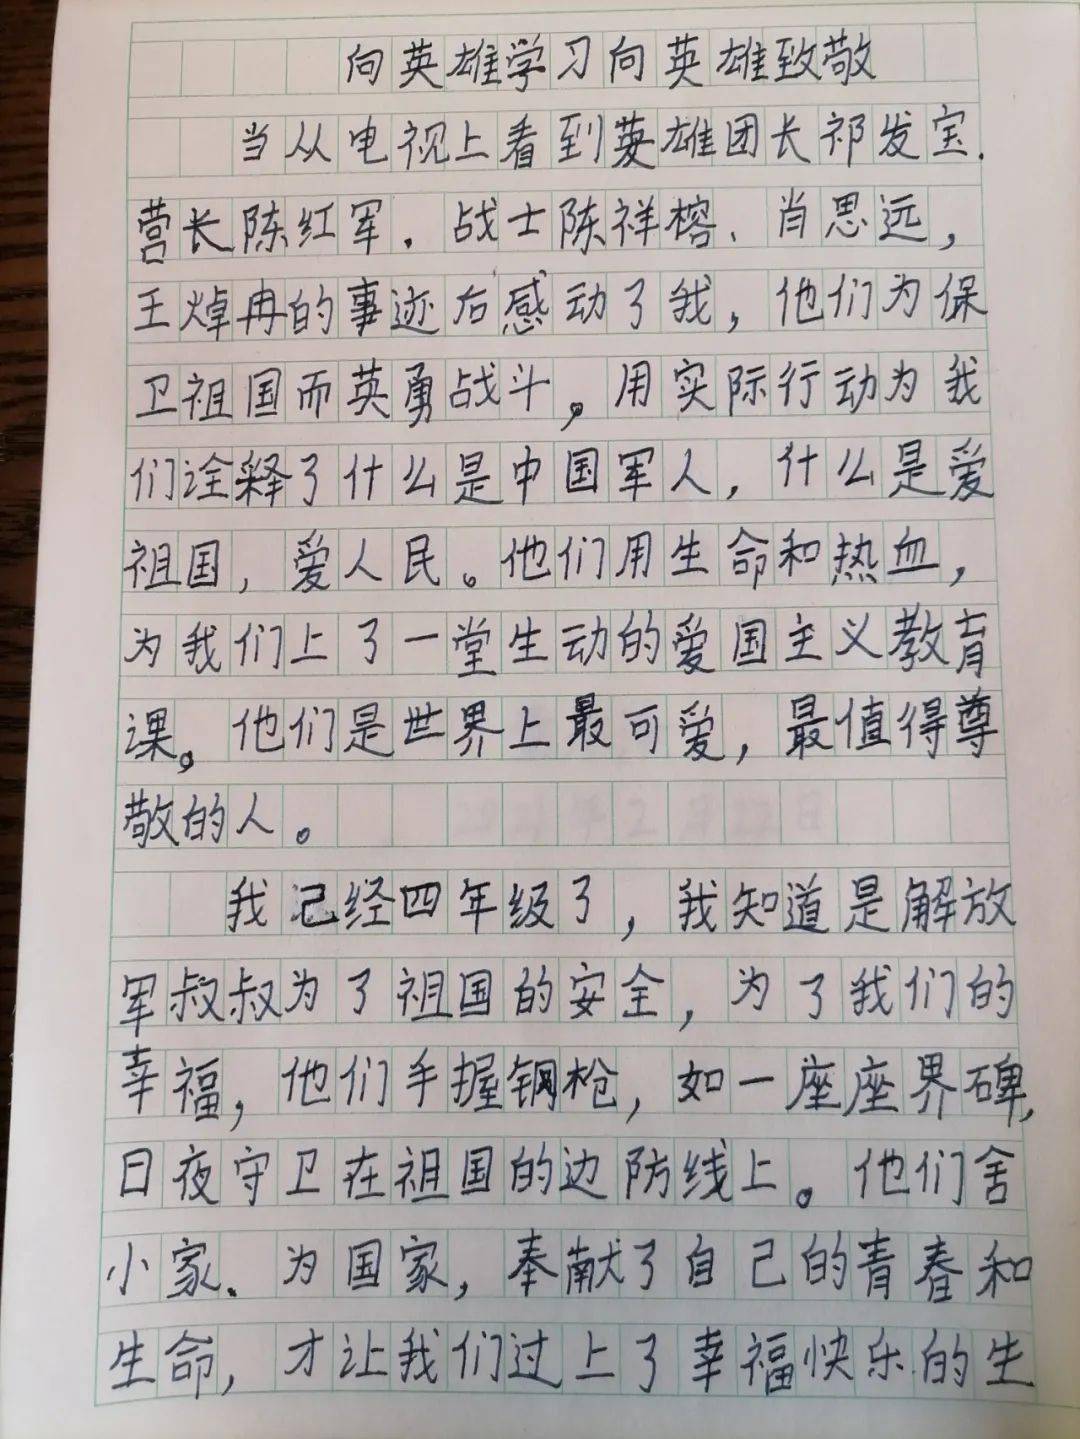 向英雄学习向英雄致敬
当从电视上看到英雄团长祁发宝.
营长陈红军.战士陈祥榕、肖思远,
王焯冉的事迹后感动了我,他们为保
卫祖国而英勇战斗。用实际行动为我
们诠释了什么是中国军人,什么是爱
祖国,爱人民。他们用生命和热血,
为我们上了一堂生动的爱国主义教育
课。他们是世界上最可爱,最值得尊
敬的人。
2021年2月22日
我已经四年级了,我知道是解放
军叔叔为了祖国的安全,为了我们的
幸福,他们手握钢枪,如一座座界碑,
日夜守卫在祖国的边防线上。他们舍
小家.为国家,奉献了自己的青春和
生命,才让我们过上了幸福快乐的生